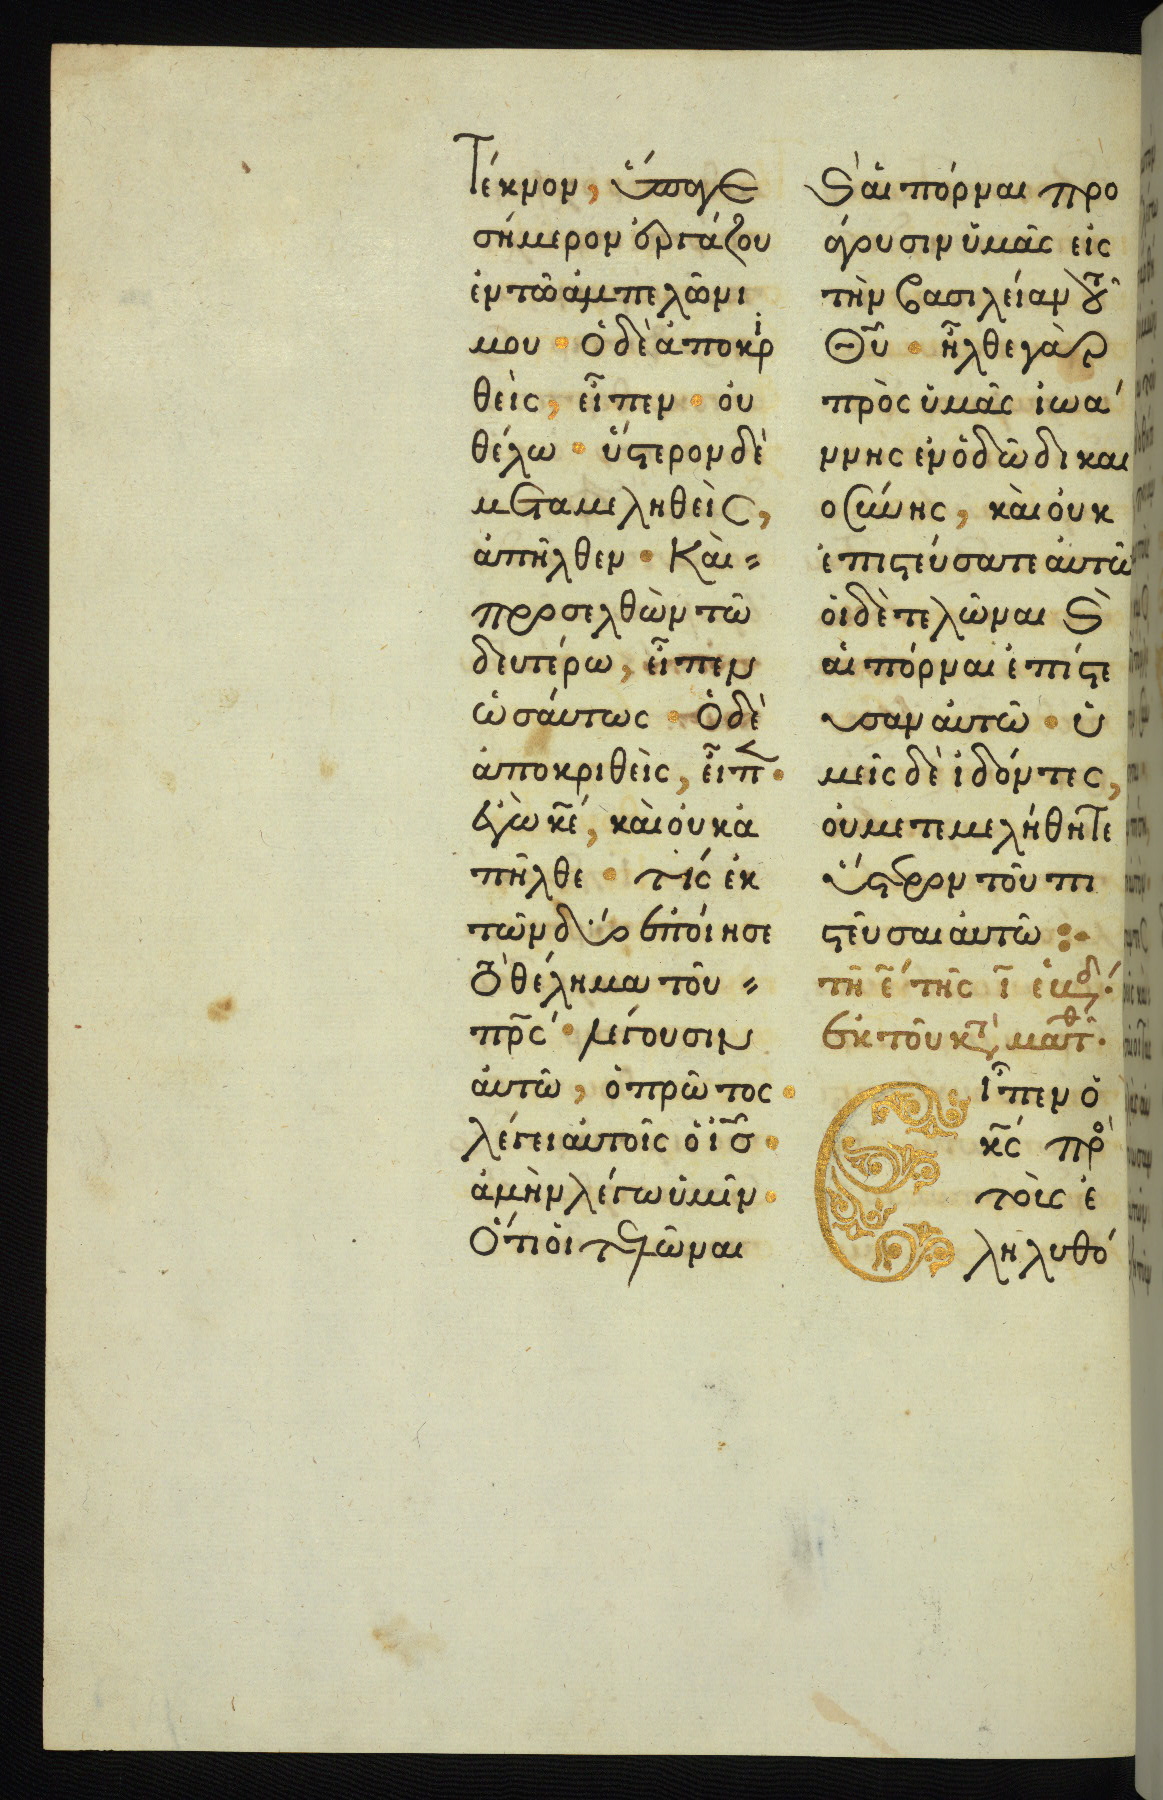 Τέκνον, ὕπαγε
σήμερον ἐργάζου
ἐν τῶ ἀμπελῶνι
μου · Ὁ δὲ ἀποκρι
θεὶς, εἶπεν · οὐ
θέλω · ὕστερον δὲ
μεταμεληθεὶς,
ἀπῆλθεν · Καὶ =
προσελθὼν τῶ
δευτέρω, εἶπεν
ὡσάυτως · Ὁ δὲ
ἀποκριθεὶς, εἶπ ·
ἐγὼ κε̄, καὶ οὐκ ἀ
πῆλθε · τίς ἐκ
τῶν δύο ἐποίησε
τὸ θέλημα τοῦ =
πρ̄ς · λέγουσιν
ἀυτῶ, ὁ πρῶτος ·
λέγει ἀυτοῖς ὁ ἰ̄ς ·
ἀμὴν λέγω ὑμῖν ·
Ὅτι οἱ τελῶναι
ϗ αἱ πόρναι προ
άγουσιν ὑμᾶς εἰς
τὴν βασιλείαν τοῦ
Θῡ · ἦλθε γὰρ
πρὸς ὑμᾶς ἰωά
ννης ἐν ὁδῶ δικαι
οσύνης, καὶ οὐκ
ἐπιστεύσατε ἀυτῶ
οἱ δὲ τελῶναι ϗ
αἱ πόρναι ἐπίστε
υσαν ἀυτῶ · ὑ
μεῖς δὲ ἰδόντες,
οὐ μετεμελήθητε
ὕστερον τοῦ πι
στεῦσαι ἀυτῶ :·
τῆ ε̄ τῆς ῑ ἑβδ ·
ἐκ τοῦ κτ ματθ ·
Εἶπεν ὁ
κ̄ς πρὸ
τοὺς ἐ
ληλυθό